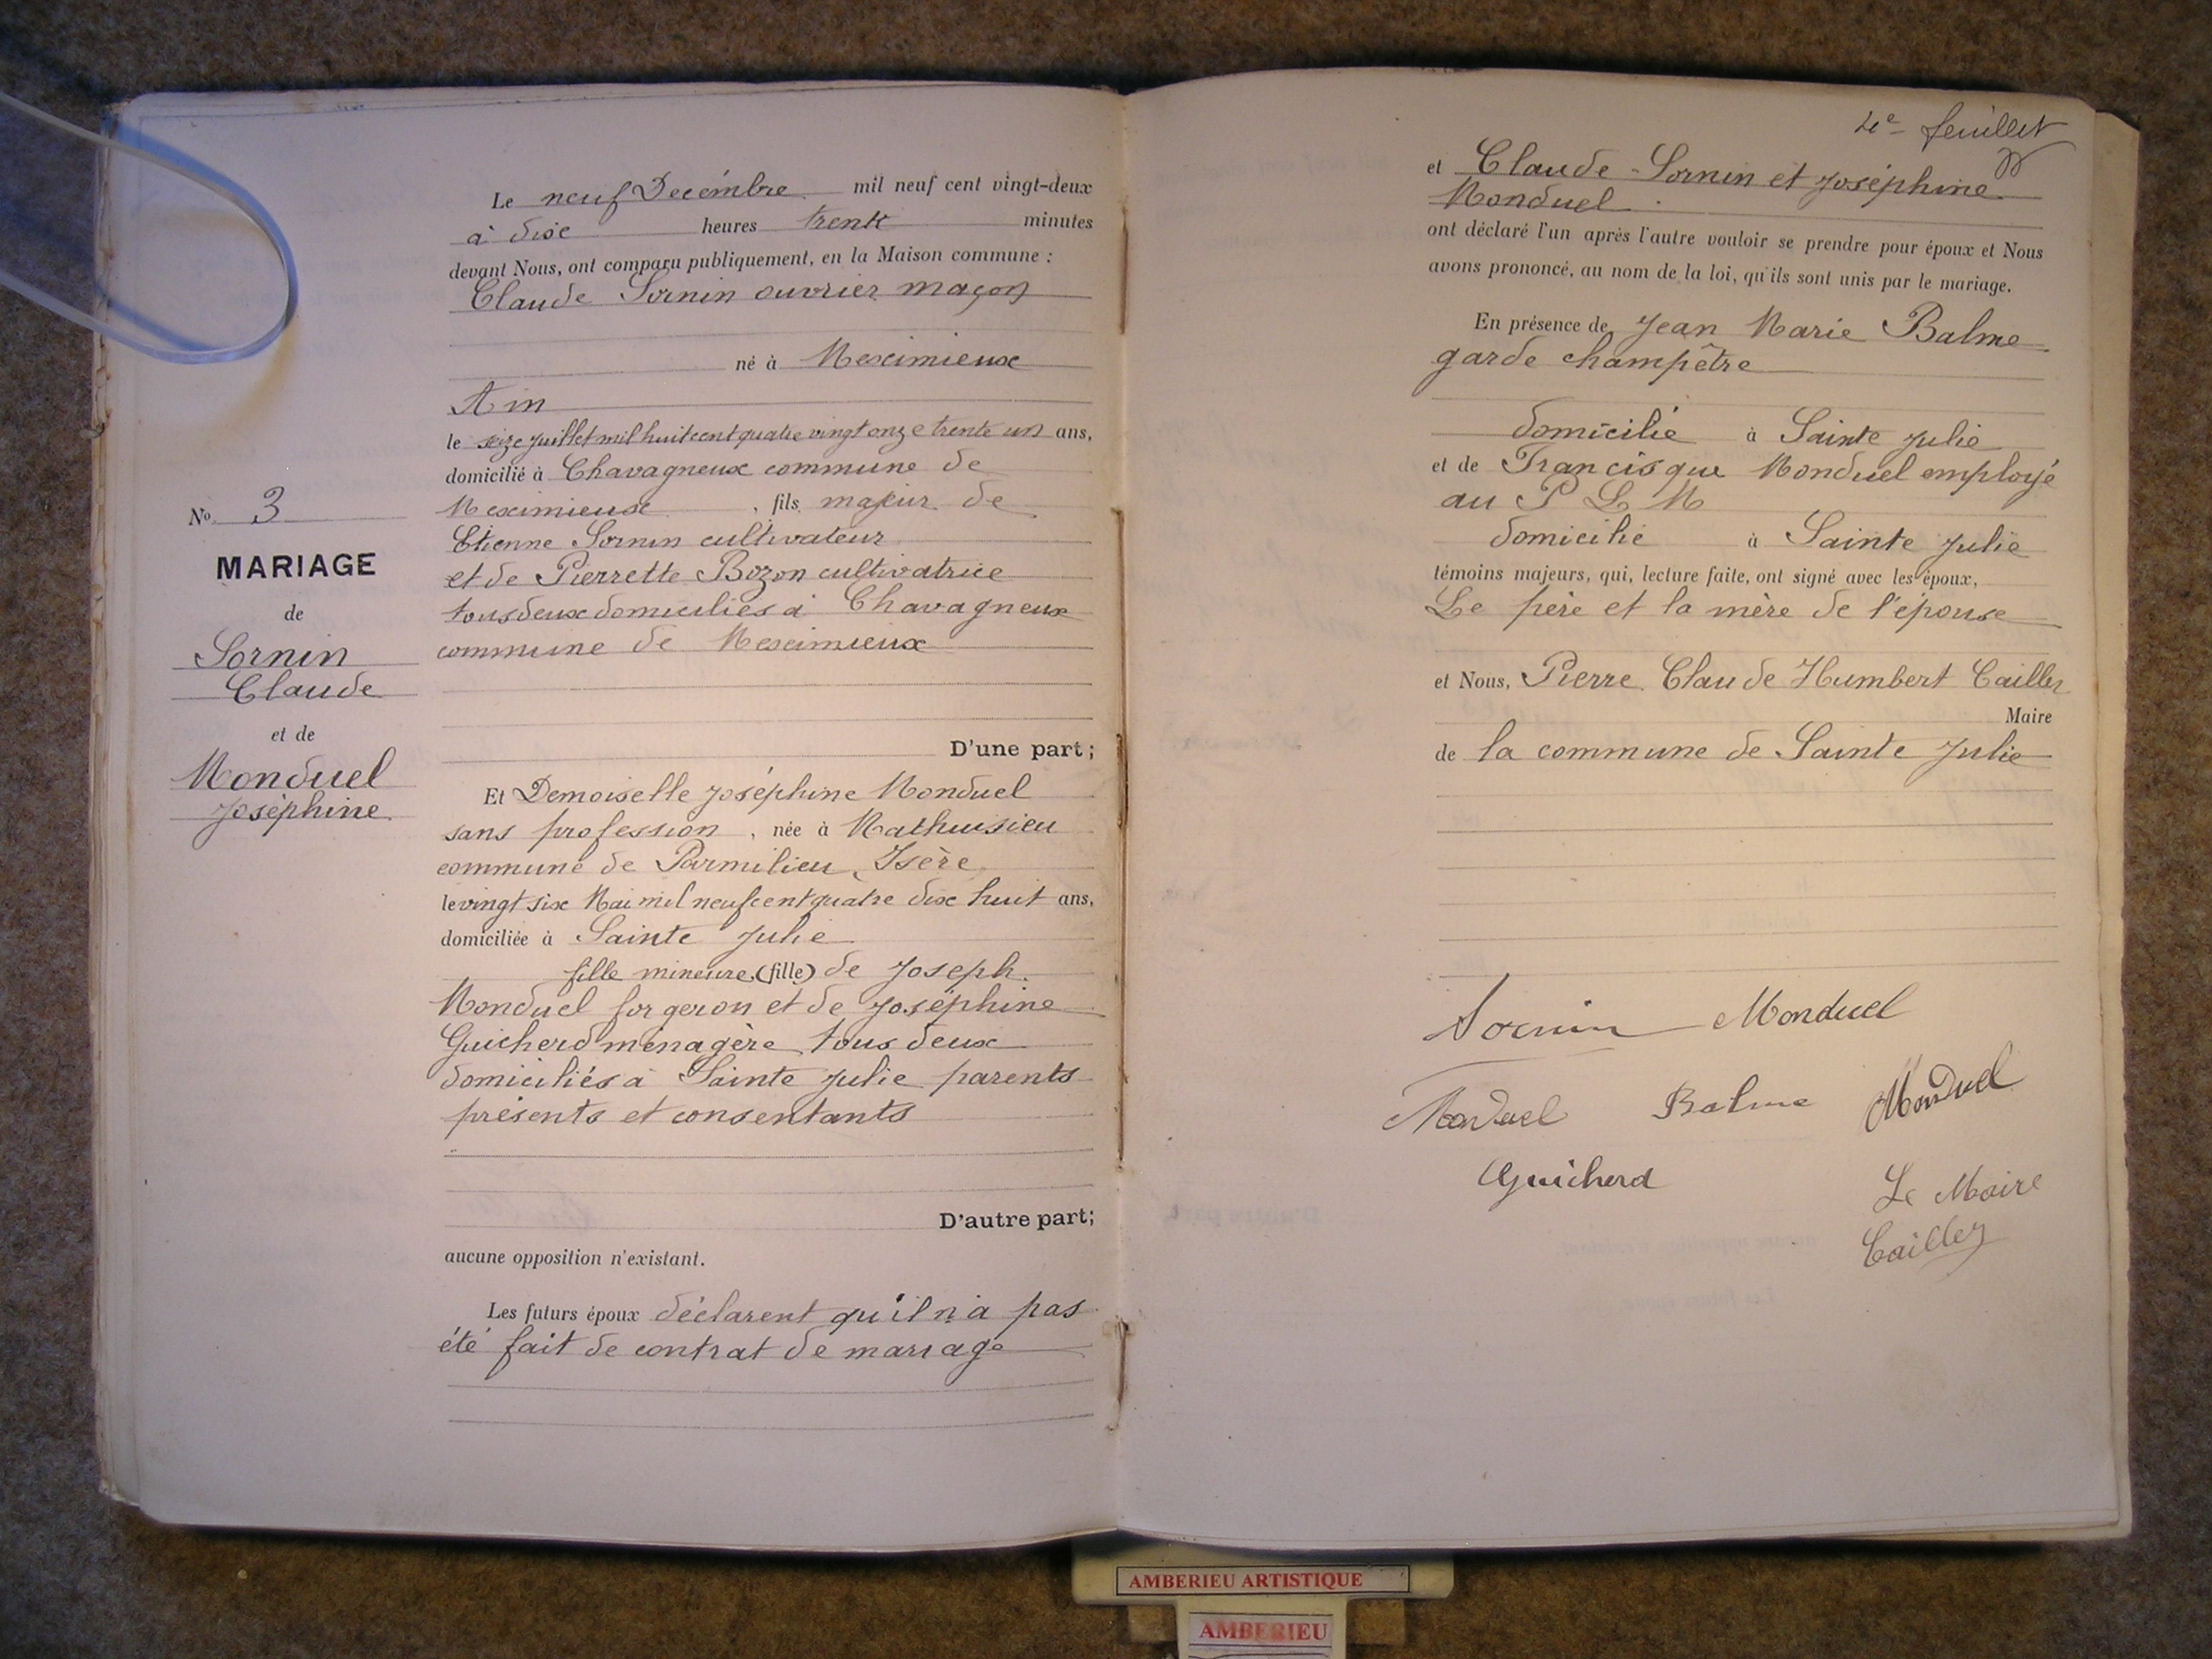 No 3
MARIAGE
de
Sornin
Claude
et de
Monduel
Joséphine
Le neuf Decémbre mil neuf cent vingt-deux
à dix heures trente minutes
devant Nous, ont comparu publiquement, en la Maison commune :
Claude Sornin ouvrier maçon
né à Meximieux
Ain
le seize juillet mil huit cent quatre vingt onze trente un ans,
domicilié à Chavagneux commune de
Meximieux, fils majeur de
Etienne Sornin cultivateur
et de Pierrette Bozon cultivatrice
tous deux domiciliés à Chavagneux
commune de Meximieux
D'une part;
Et Demoiselle Joséphine Monduel
sans profession, née à Mathusieu
commune de Parmilieu, Isère
le vingt six Mai mil neuf cent quatre dix huit ans,
domiciliée à Sainte Julie
fille mineure, (fille) de Joseph
Monduel forgeron et de Joséphine
Guicherd ménagère, tous deux
domiciliés à Sainte Julie parents
présents et consentants
D'autre part;
aucune opposition n'existant.
Les futurs époux déclarent qu'il n'a pas
été fait de contrat de mariage
4e feuillet
et Claude Sornin et Joséphine
Monduel
ont déclaré l'un après l'autre vouloir se prendre pour époux et Nous
avons prononcé, au nom de la loi, qu'ils sont unis par le mariage.
En présence de Jean Marie Balme
garde champêtre
domicilié à Sainte Julie
et de Francisque Monduel employé
au P L M
domicilié à Sainte Julie
témoins majeurs, qui, lecture faite, ont signé avec les époux,
Le père et la mère de l'épouse
et Nous, Pierre Claude Humbert Cailler
Maire
de la commune de Sainte Julie
Sornin Monduel
Monduel Balme Monduel
Guicherd
Le Maire
Cailler
AMBERIEU ARTISTIQUE
AMBERIEU